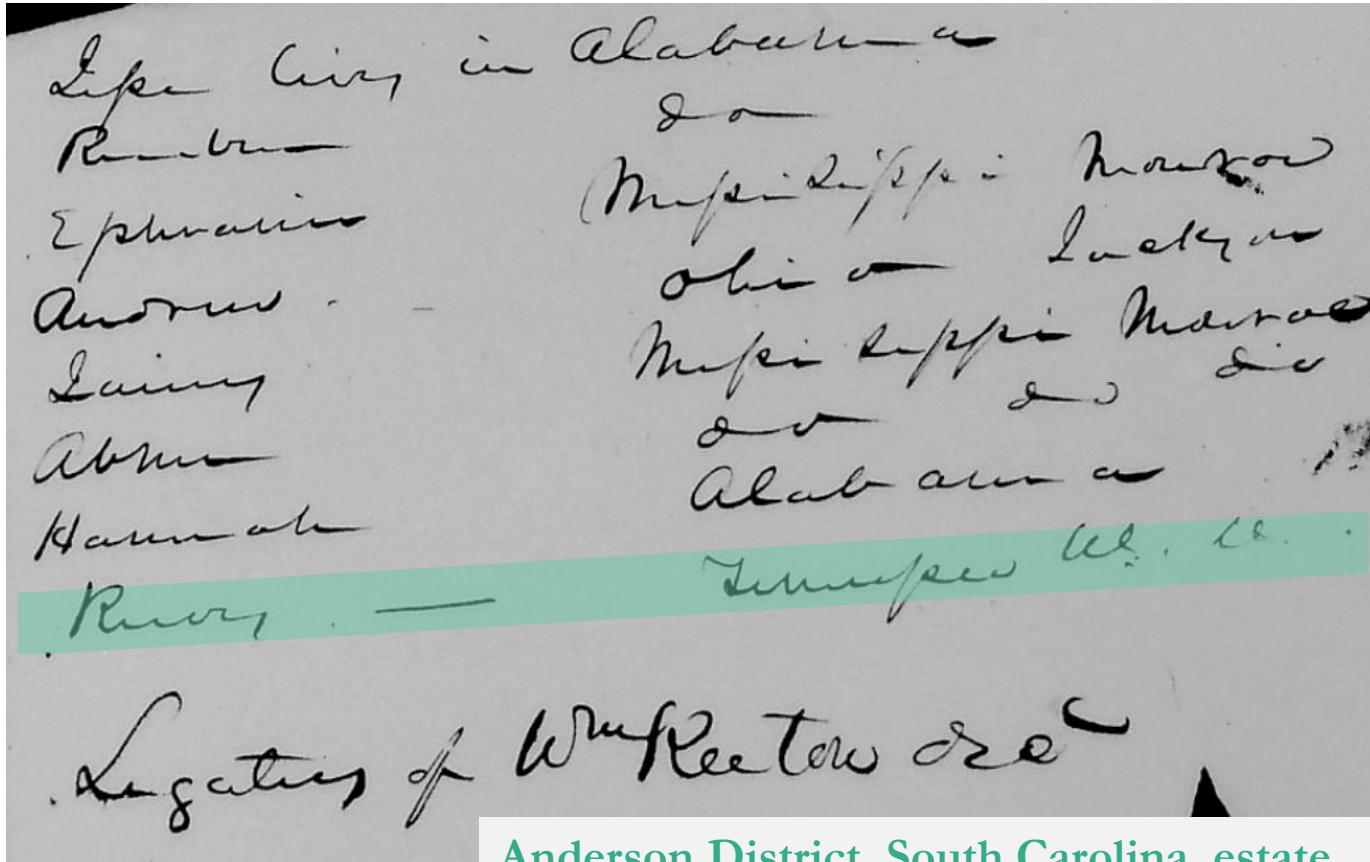 Jesse living in Alabama
Reuben do
Ephraim Missisippi Monroe
Andrew - Ohio Jackson
Missisippi Monroe
Abner do do do
Hannah Alabama
— Tennessee
Legatees of Wm Keeton decd
Anderson District, South Carolina, estate